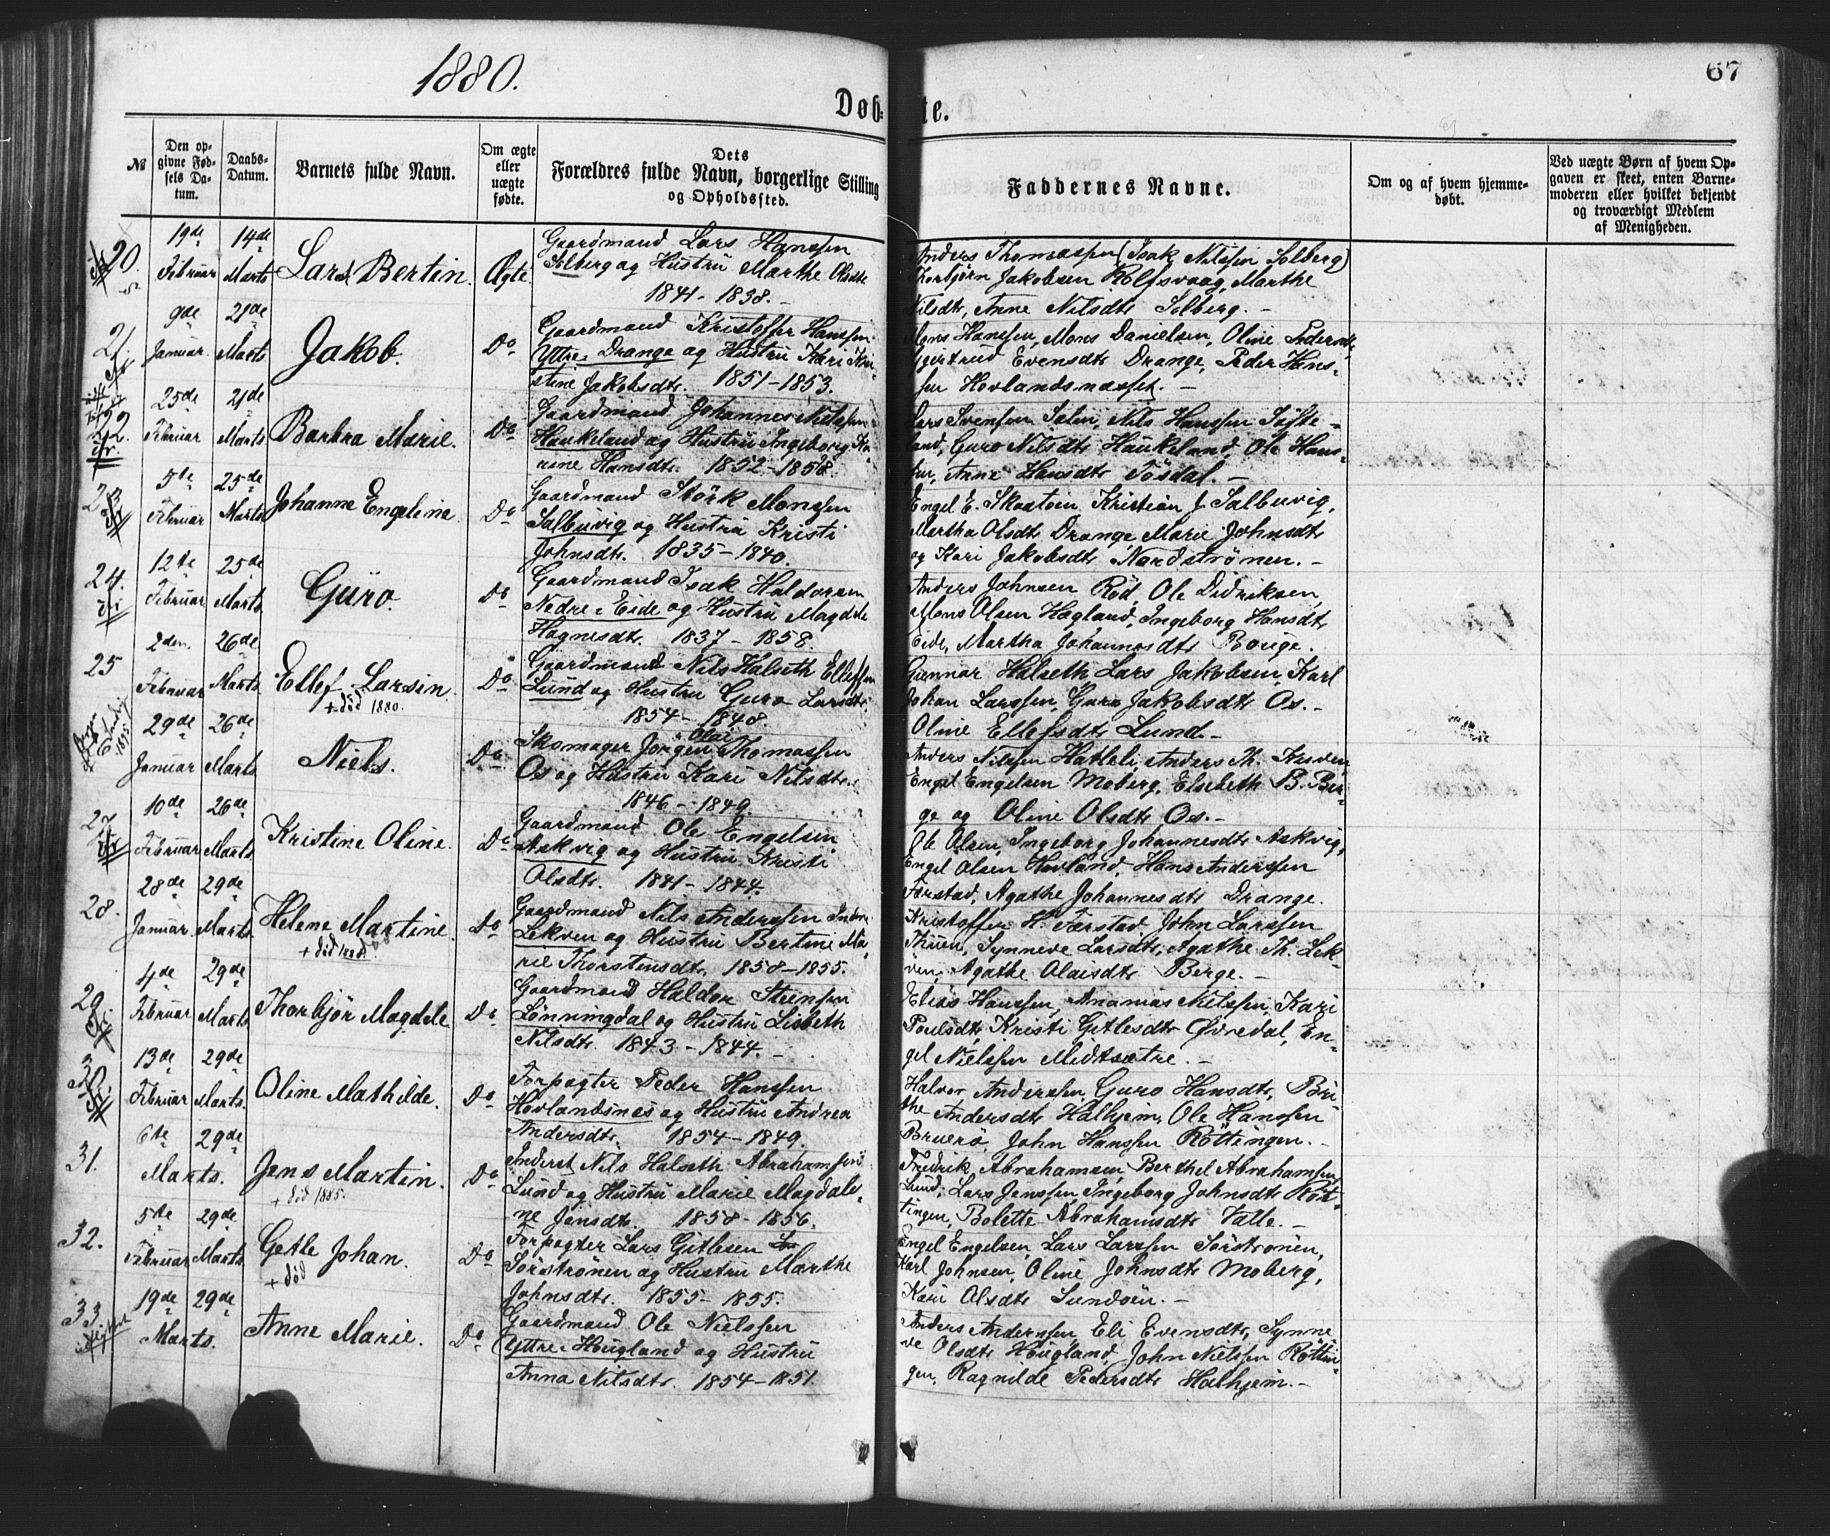 1880.
67
Døbte.
№
Den opgivne Fødsels Datum.
Daabs-Datum.
Barnets fulde Navn.
Om ægte eller uægte fødte.
Dets Forældres fulde Navn, borgerlige Stilling og Opholdssted.
Faddernes Navne.
Om og af hvem hjemmedøbt.
Ved uægte Børn af hvem Opgaven er skeet, enten Barnemoderen eller hvilket bekjendt og troværdigt Medlem af Menigheden.
20.
19de Februar
14de Marts
Lars Bertin.
Ægte.
Gaardmand Lars Hanssen
Solberg og Hustru Marthe Olsdtr
1841 - 1838. -
Anders Thomassen (Isak Nilssen Solberg)
Thorbjørn Jakobsen Rolfsvaag, Marthe
Nilsdtr, Anne Nilsdtr Solberg. -
21.
9de Januar.
21de Marts
Jakob.
Do.
Gaardmand Kristoffer Hanssen
Yttre-Drange og Hustru Kari Kri-
stine Jakobsdtr. 1851 - 1853.
Mons Hanssen, Mons Danielsen, Oline Pedersdtr,
Gjertrud Evensdtr Drange, Peder Hans-
sen Hovlandsnesset. -
22.
25de Februar
21de Marts
Barbra Marie.
Do
Gaardmand Johannes Nielssen
Haukeland og Hustru Ingeborg Ka-
rine Hansdtr. 1852 - 1858.
Lars Svensen Salen, Nils Hanssen Søfte-
land, Guro Nilsdtr Haukeland, Ole Hans-
sen, Anne Hansdtr Tøsdal. -
23.
5te Februar
25de Marts
Johanne Engelina
Do
Gaardmand Størk Monssen
Salbuvig og Hustru Kristi
Johnsdtr. 1835 - 1840.
Engel E. Skaatøin, Kristian J. Salbuvig,
Martha Olsdtr Drange, Marie Johnsdtr
og Kari Jakobsdtr Nordstrønen. -
24.
12te Februar
25de Marts
Guro.
Do
Gaardmand Isak Haldorsen
Nedre-Eide og Hustru Magdele
Hagnesdtr. 1837 - 1858.
Anders Johnsen Rød, Ole Didriksen,
Mons Olsen Hagland, Ingeborg Hansdtr
Eide, Martha Johannesdtr Borge.
25
2den Februar
26de Marts
Ellef Larsin.
+ død 1880.
Do
Gaardmand Nils Halseth Ellefsen
Lund og Hustru Guro Larsdtr
1854 - 1848.
Gunnar Halseth, Lars Jakobsen, Karl
Johan Larssen, Guro Jakobsdtr Os. -
Oline Ellefsdtr Lund. -
29de Januar
26de Marts
Niels.
Do
Skomager Jørgen Olai Thomassen
Os og Hustru Kari Nilsdtr.
1846 - 1849.
Anders Nilssen Hatleli, Anders Th.
Engel Engelsen Moberg, Elsebeth B. Ber-
ge og Oline Olsdtr Os. -
27.
10de Februar
26de Marts.
Kristine Oline.
Do
Gaardmand Ole Engelsen
Askvig og Hustru Kristi
Olsdtr. 1841 - 1844.
Ole Olsen, Ingeborg Johannesdtr Askvig,
Engel Olsen Hovland, Hans Anderssen
Færstad, Agathe Johannesdtr Drange.
28.
28de Januar
29de Marts.
Helene Martine.
+ død 1880.
Do
Gaardmand Nils Anderssen Indre
Lekven og Hustru Bertine Ma-
rie Thorstensdtr. 1858 - 1855.
Kristoffer H. Færstad, John Larssen
Thuen, Synneve Larsdtr, Agathe Th. Lek-
ven, Agathe Olaisdtr Berge. -
29.
4de Februar
29de Marts.
Thorbjør Magdele
Do
Gaardmand Haldor Steensen
Lønningdal og Hustru Lisbeth
Nilsdtr. 1843 - 1844. -
Elias Hanssen, Ananias Nielssen, Kari
Poulsdtr, Kristi Gitlesdtr Øvredal, En-
gel Nielssen Midtsætre. -
30.
13de Februar
29de Marts.
Oline Mathilde.
Do
Forpagter Peder Hanssen
Hovlandsnes og Hustru Andrea
Andersdtr. 1854 - 1849.
Halvor Anderssen, Guro Hansdtr, Bri-
the Andersdtr Halhjem, Ole Hanssen
Bruerø, John Hanssen Røttingen. -
31.
6te Marts.
29de
Jens Martin.
+ død 1885.
Do
Inderst Nils Halseth Abrahamsen
Lund og Hustru Marie Magdale-
ne Jensdtr. 1858 - 1856.
Fredrik Abrahamsen, Berthel Abrahamsen
Lund, Lars Jenssen, Ingeborg Johnsdtr Røt-
tingen, Bolette Abrahamsdtr Valle. -
32.
5te Februar
29de Marts.
Getle Johan.
+ død
Do
Forpagter Lars Gitlesen
Sørstrønen og Hustru Marthe
Johnsdtr. 1855 - 1855.
Engel Engelsen, Lars Larssen Sørstrønen,
Karl Johnsen, Oline Johnsdtr Moberg,
Kari Olsdtr Sundøen. -
33.
19de Marts.
29de
Anne Marie.
Do
Gaardmand Ole Nielssen
Yttre-Haugland og Hustru
Anna Nilsdtr. 1854 - 1851.
Anders Anderssen, Eli Evensdtr, Synne-
ve Olsdtr Haugland, John Nielssen Røttin-
gen, Ragnilde Pedersdtr Halhjem. -